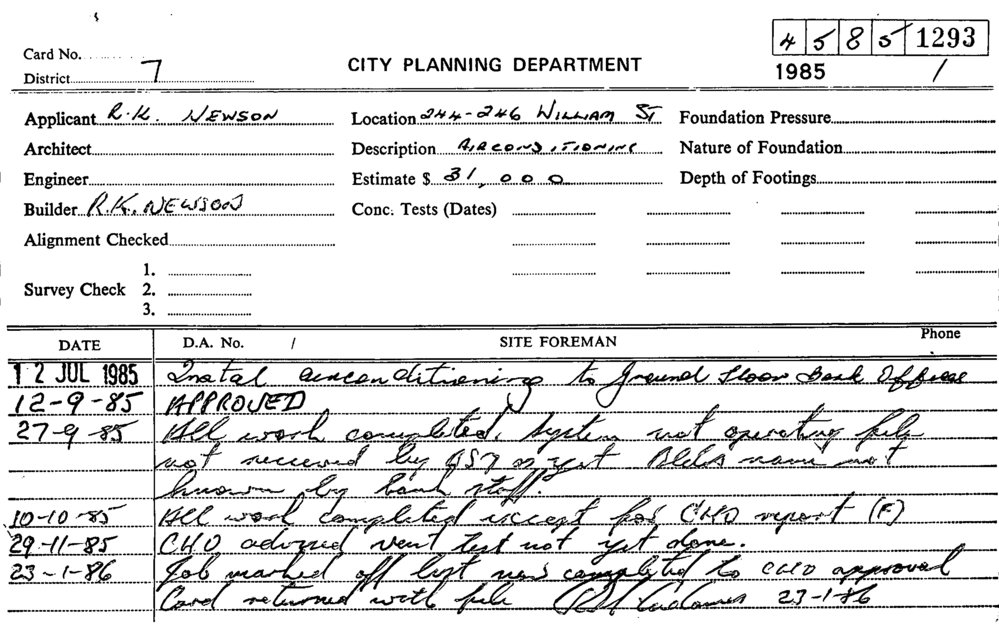 4 5 8 5 1293
Card No.
District 7
CITY PLANNING DEPARTMENT
1985 /
Applicant R.K. NEWSON
Location 244-246 WILLIAM ST
Foundation Pressure
Architect
Description AIRCONDITIONING
Nature of Foundation
Engineer
Estimate $ 31,000
Depth of Footings
Builder R.K. NEWSON
Conc. Tests (Dates)
Alignment Checked
1.
Survey Check 2.
3.
DATE D.A. No. / SITE FOREMAN Phone
12 JUL 1985 Instal airconditioning to ground floor Bank Offices
12-9-85 APPROVED
27-9-85 All work completed. System not operating file
not received by as yet Blds name not
known by bank staff.
10-10-85 All work completed except for CHO report (F)
29-11-85 CHO advised vent test not yet done.
23-1-86 Job marked off list now completed to CHO approval
Card returned with file 23-1-86